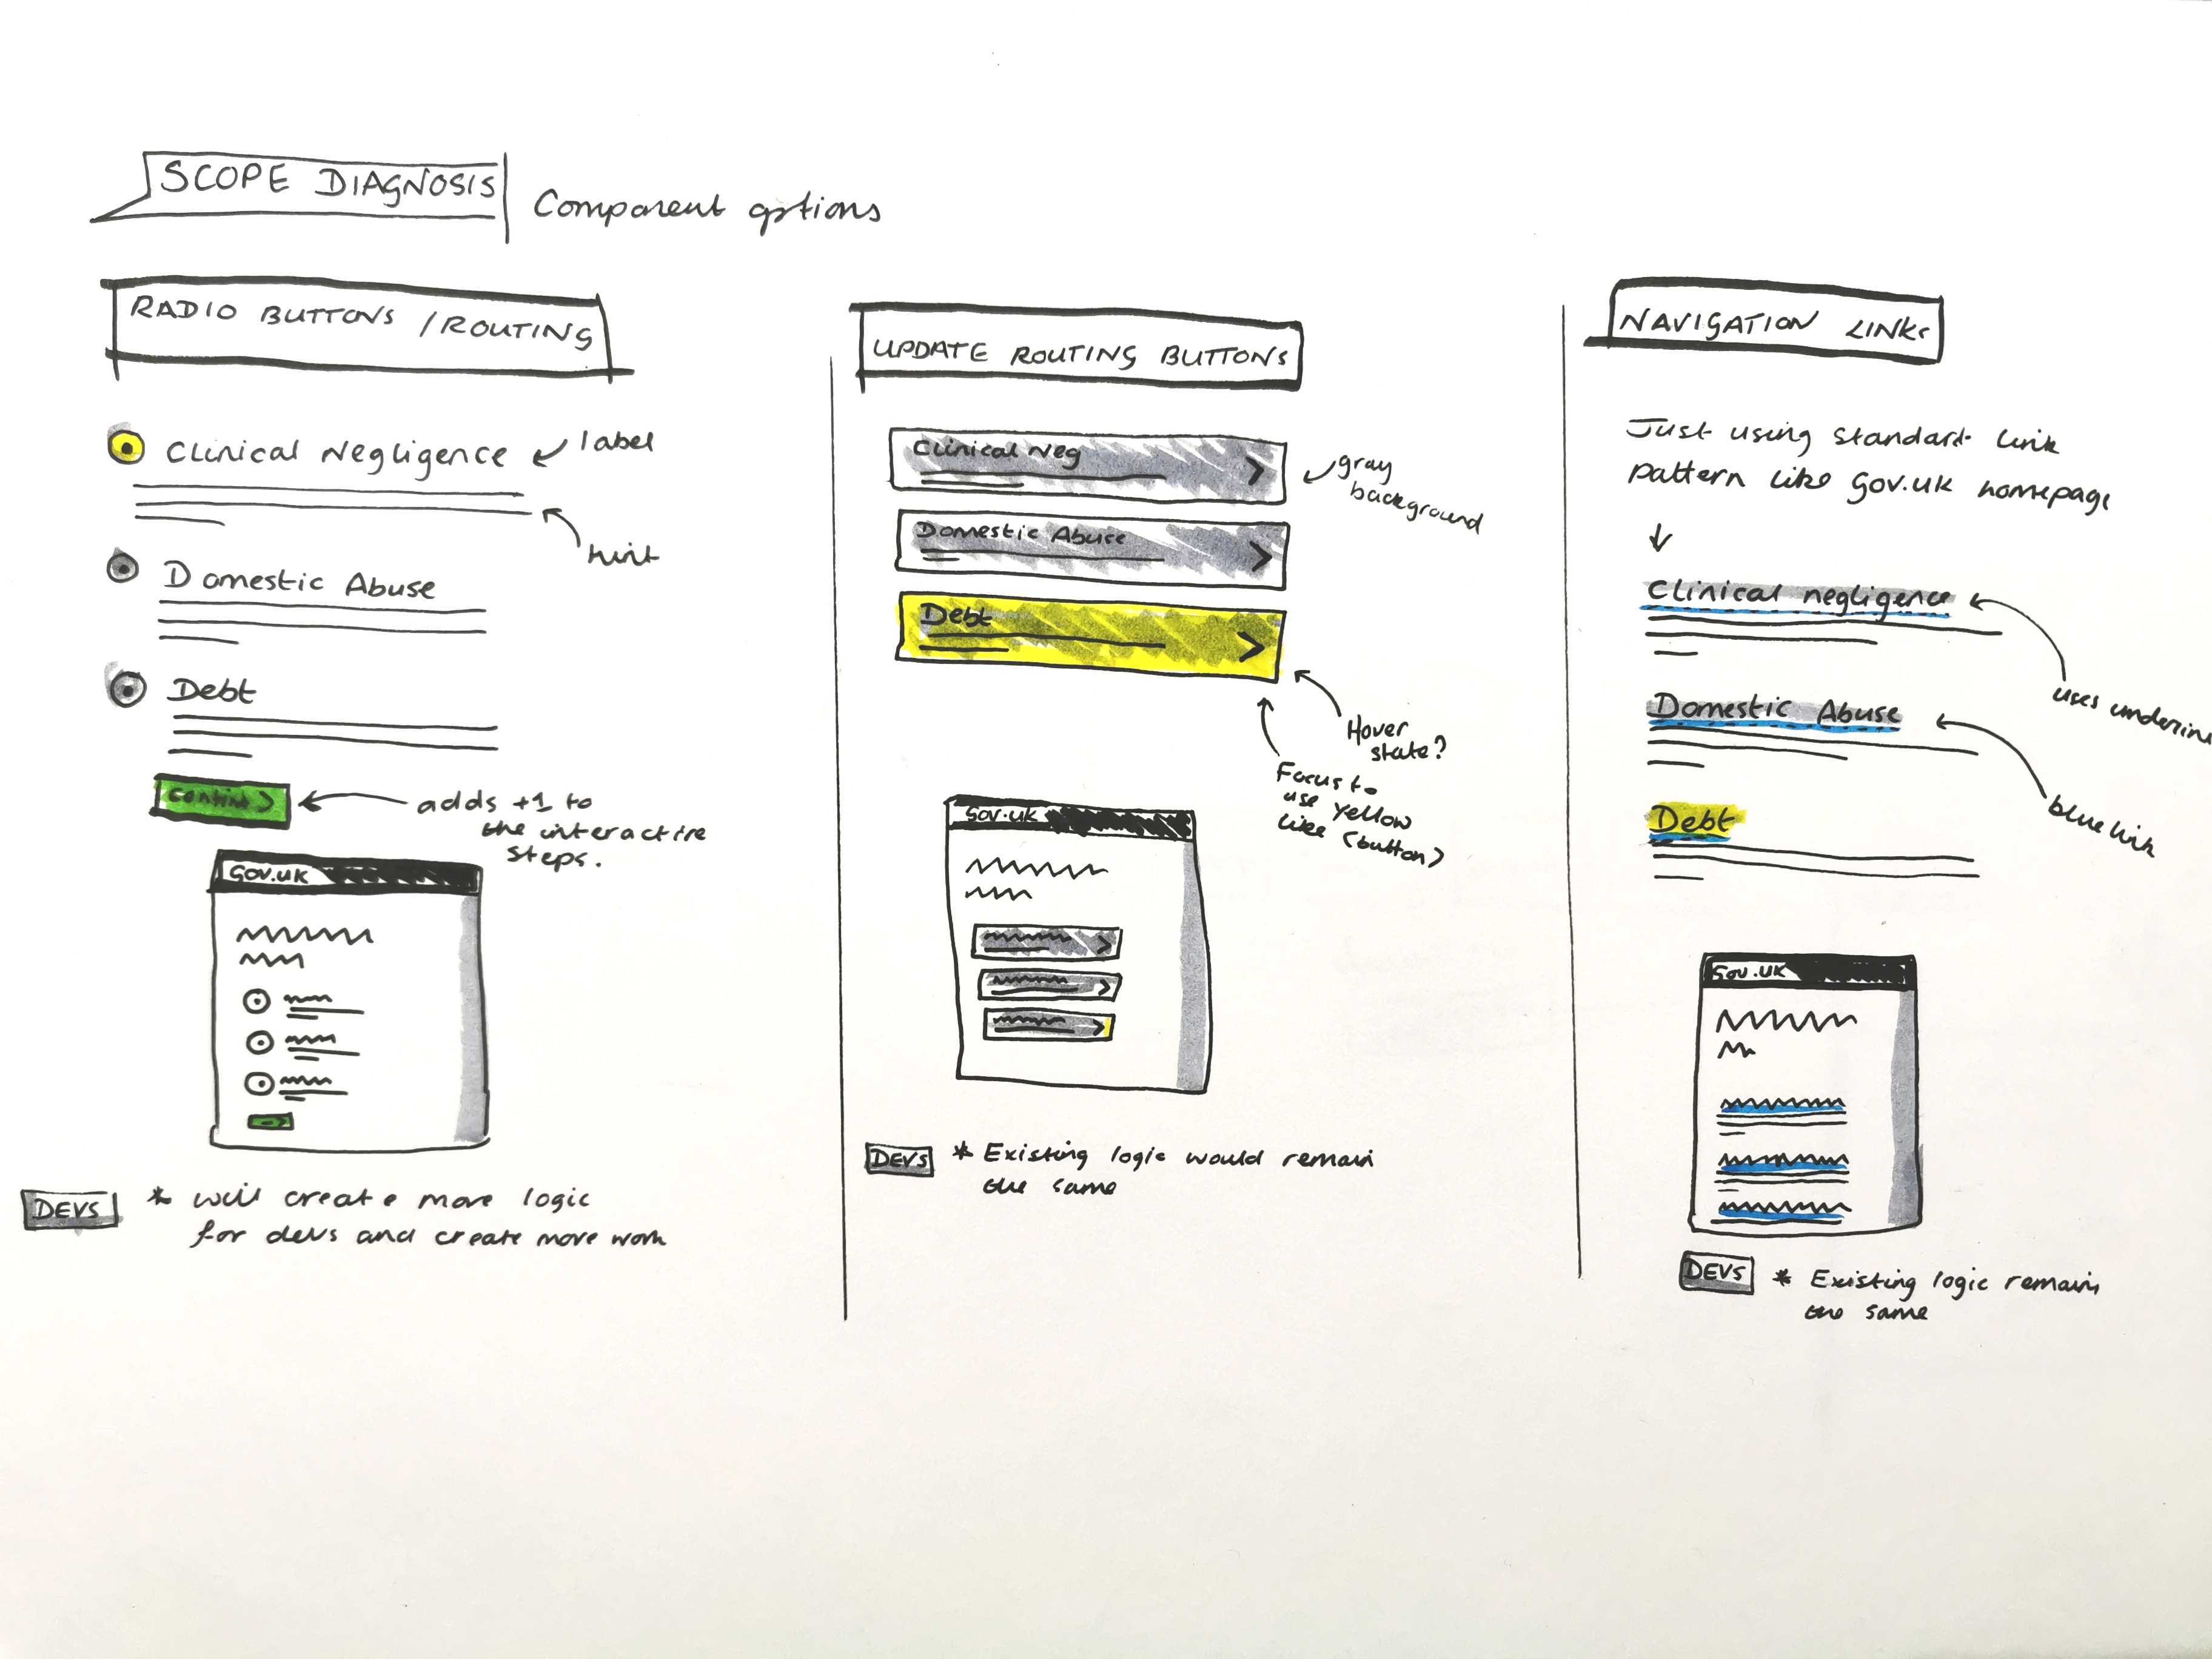 SCOPE DIAGNOSIS
Component options
RADIO BUTTONS / ROUTING
Clinical Negligence
label
hint
Domestic Abuse
Debt
adds +1 to
the interactive
steps.
GOV.UK
DEVS
* will create more logic
for devs and create more work
UPDATE ROUTING BUTTONS
Clinical Neg
gray
background
Domestic Abuse
Debt
Hover
state?
Focus to
use yellow
like (button)
GOV.UK
DEVS
* Existing logic would remain
the same
NAVIGATION LINKS
Just using standard link
pattern like Gov.uk homepage
Clinical negligence
uses underline
Domestic Abuse
blue link
Debt
Gov.UK
DEVS
* Existing logic remain
the same